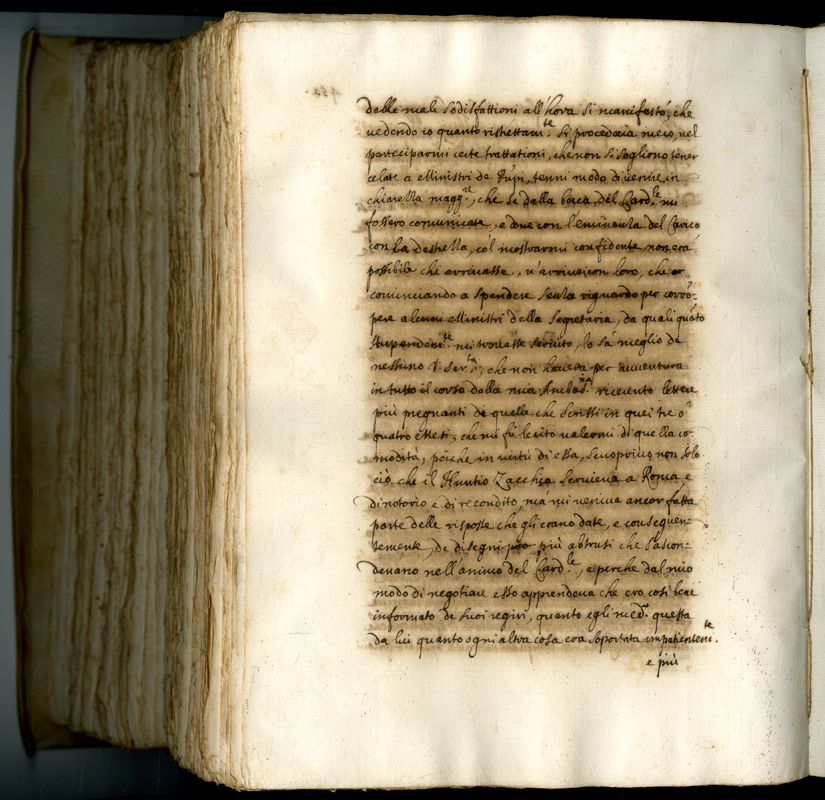 delle male sodisfattioni all'hora si manifestò; che
vedendo io quanto ristrettam.te si procedeia meco, nel
participarmi certe trattationi, che non si sogliono tener
celate a Ministri de tenni modo di venire in
chiarezza magg.re, che se dalla bocca del Card.le mi
fossero comunicate, e doue con l'eminenza del Carico
con la destrezza, col mostrarmi confidente non era
possibile che arrivasse, u'arrivai con l'oro, che
cominciando a spendere senza riguardo per corrõ=
pere alcuni Ministri della Segretaria, da quali quãto
stupendam.te mi trouasse servito, lo sà meglio di
nessuno V. Ser.tà, che non haueua per auuentura
in tutto il corso della mia riceuuto lettere
più pregnanti de quelle che scrissi in quei tre ò
quatro Mesi, che mi fù lecito ualermi di quella co=
modità, poiche in uirtù di essa, scuoprivo non solo
ciò che il Nuntio Zacchia scriueua a Roma, e
di notorio e di recondito, mà mi ueniua ancor fatta
parte delle risposte che gli erano date, e conseguen=
temente, de disegni più abstrusi che s'ascon=
deuano nell'animo del Card.le, e perche dal mio
modo di negotiare esso apprendeua che ero così bene
informato de suoi regiri, quanto egli med.o questa
da lui quanto ogni altra cosa era soportata impatientem.te.
e più